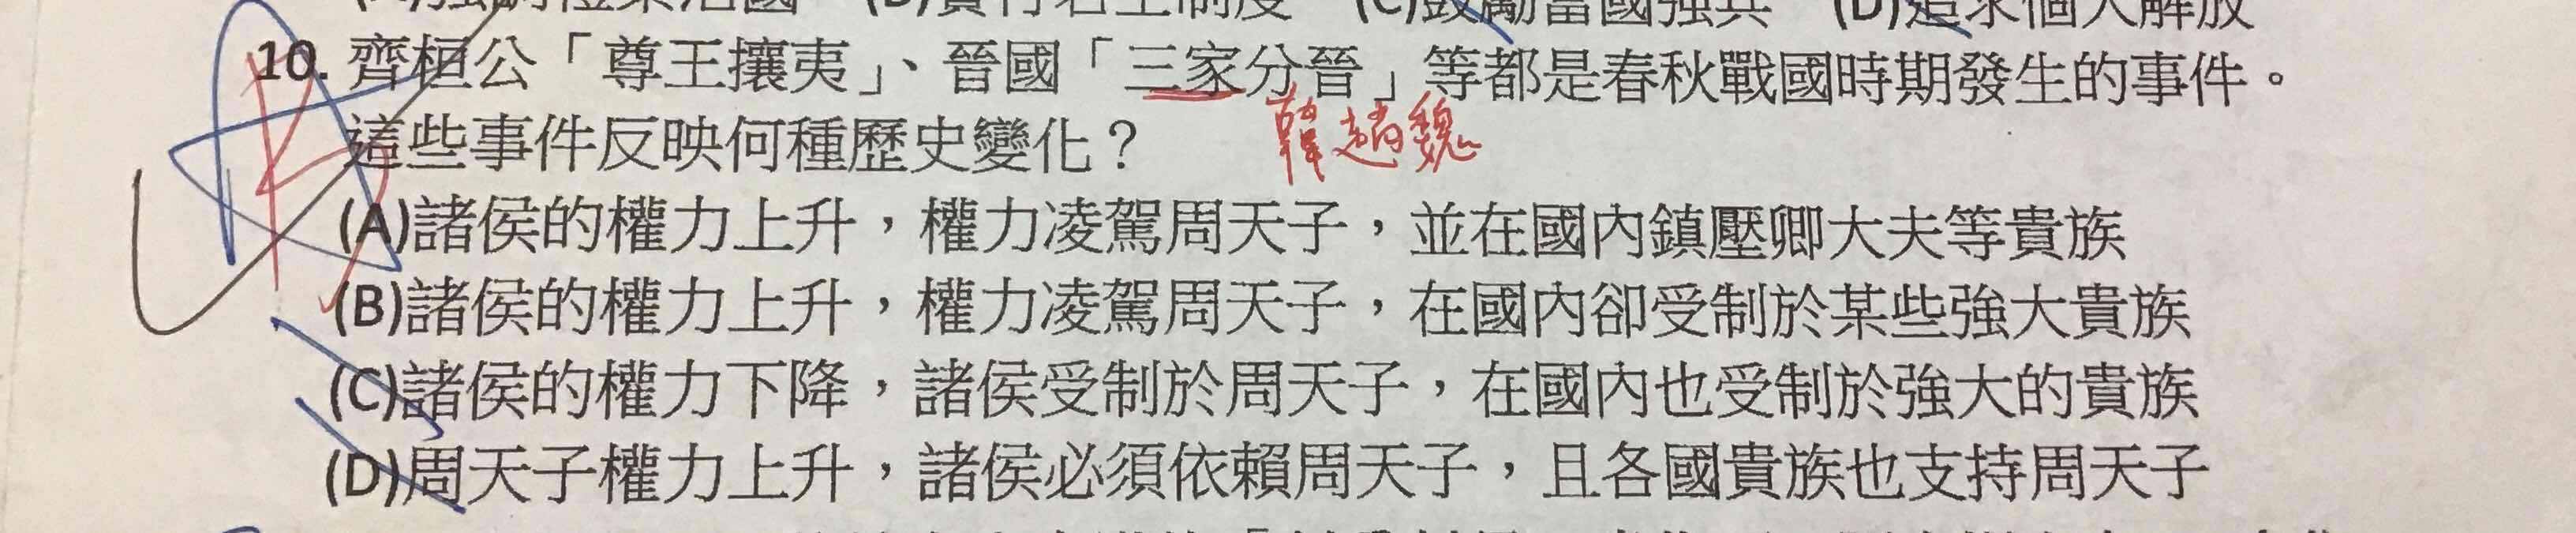 (D)追求個人解放
10. 齊桓公「尊王攘夷」、晉國「三家分晉」等都是春秋戰國時期發生的事件。
韓趙魏
這些事件反映何種歷史變化？
(A)諸侯的權力上升，權力凌駕周天子，並在國內鎮壓卿大夫等貴族
(B)諸侯的權力上升，權力凌駕周天子，在國內卻受制於某些強大貴族
(C)諸侯的權力下降，諸侯受制於周天子，在國內也受制於強大的貴族
(D)周天子權力上升，諸侯必須依賴周天子，且各國貴族也支持周天子